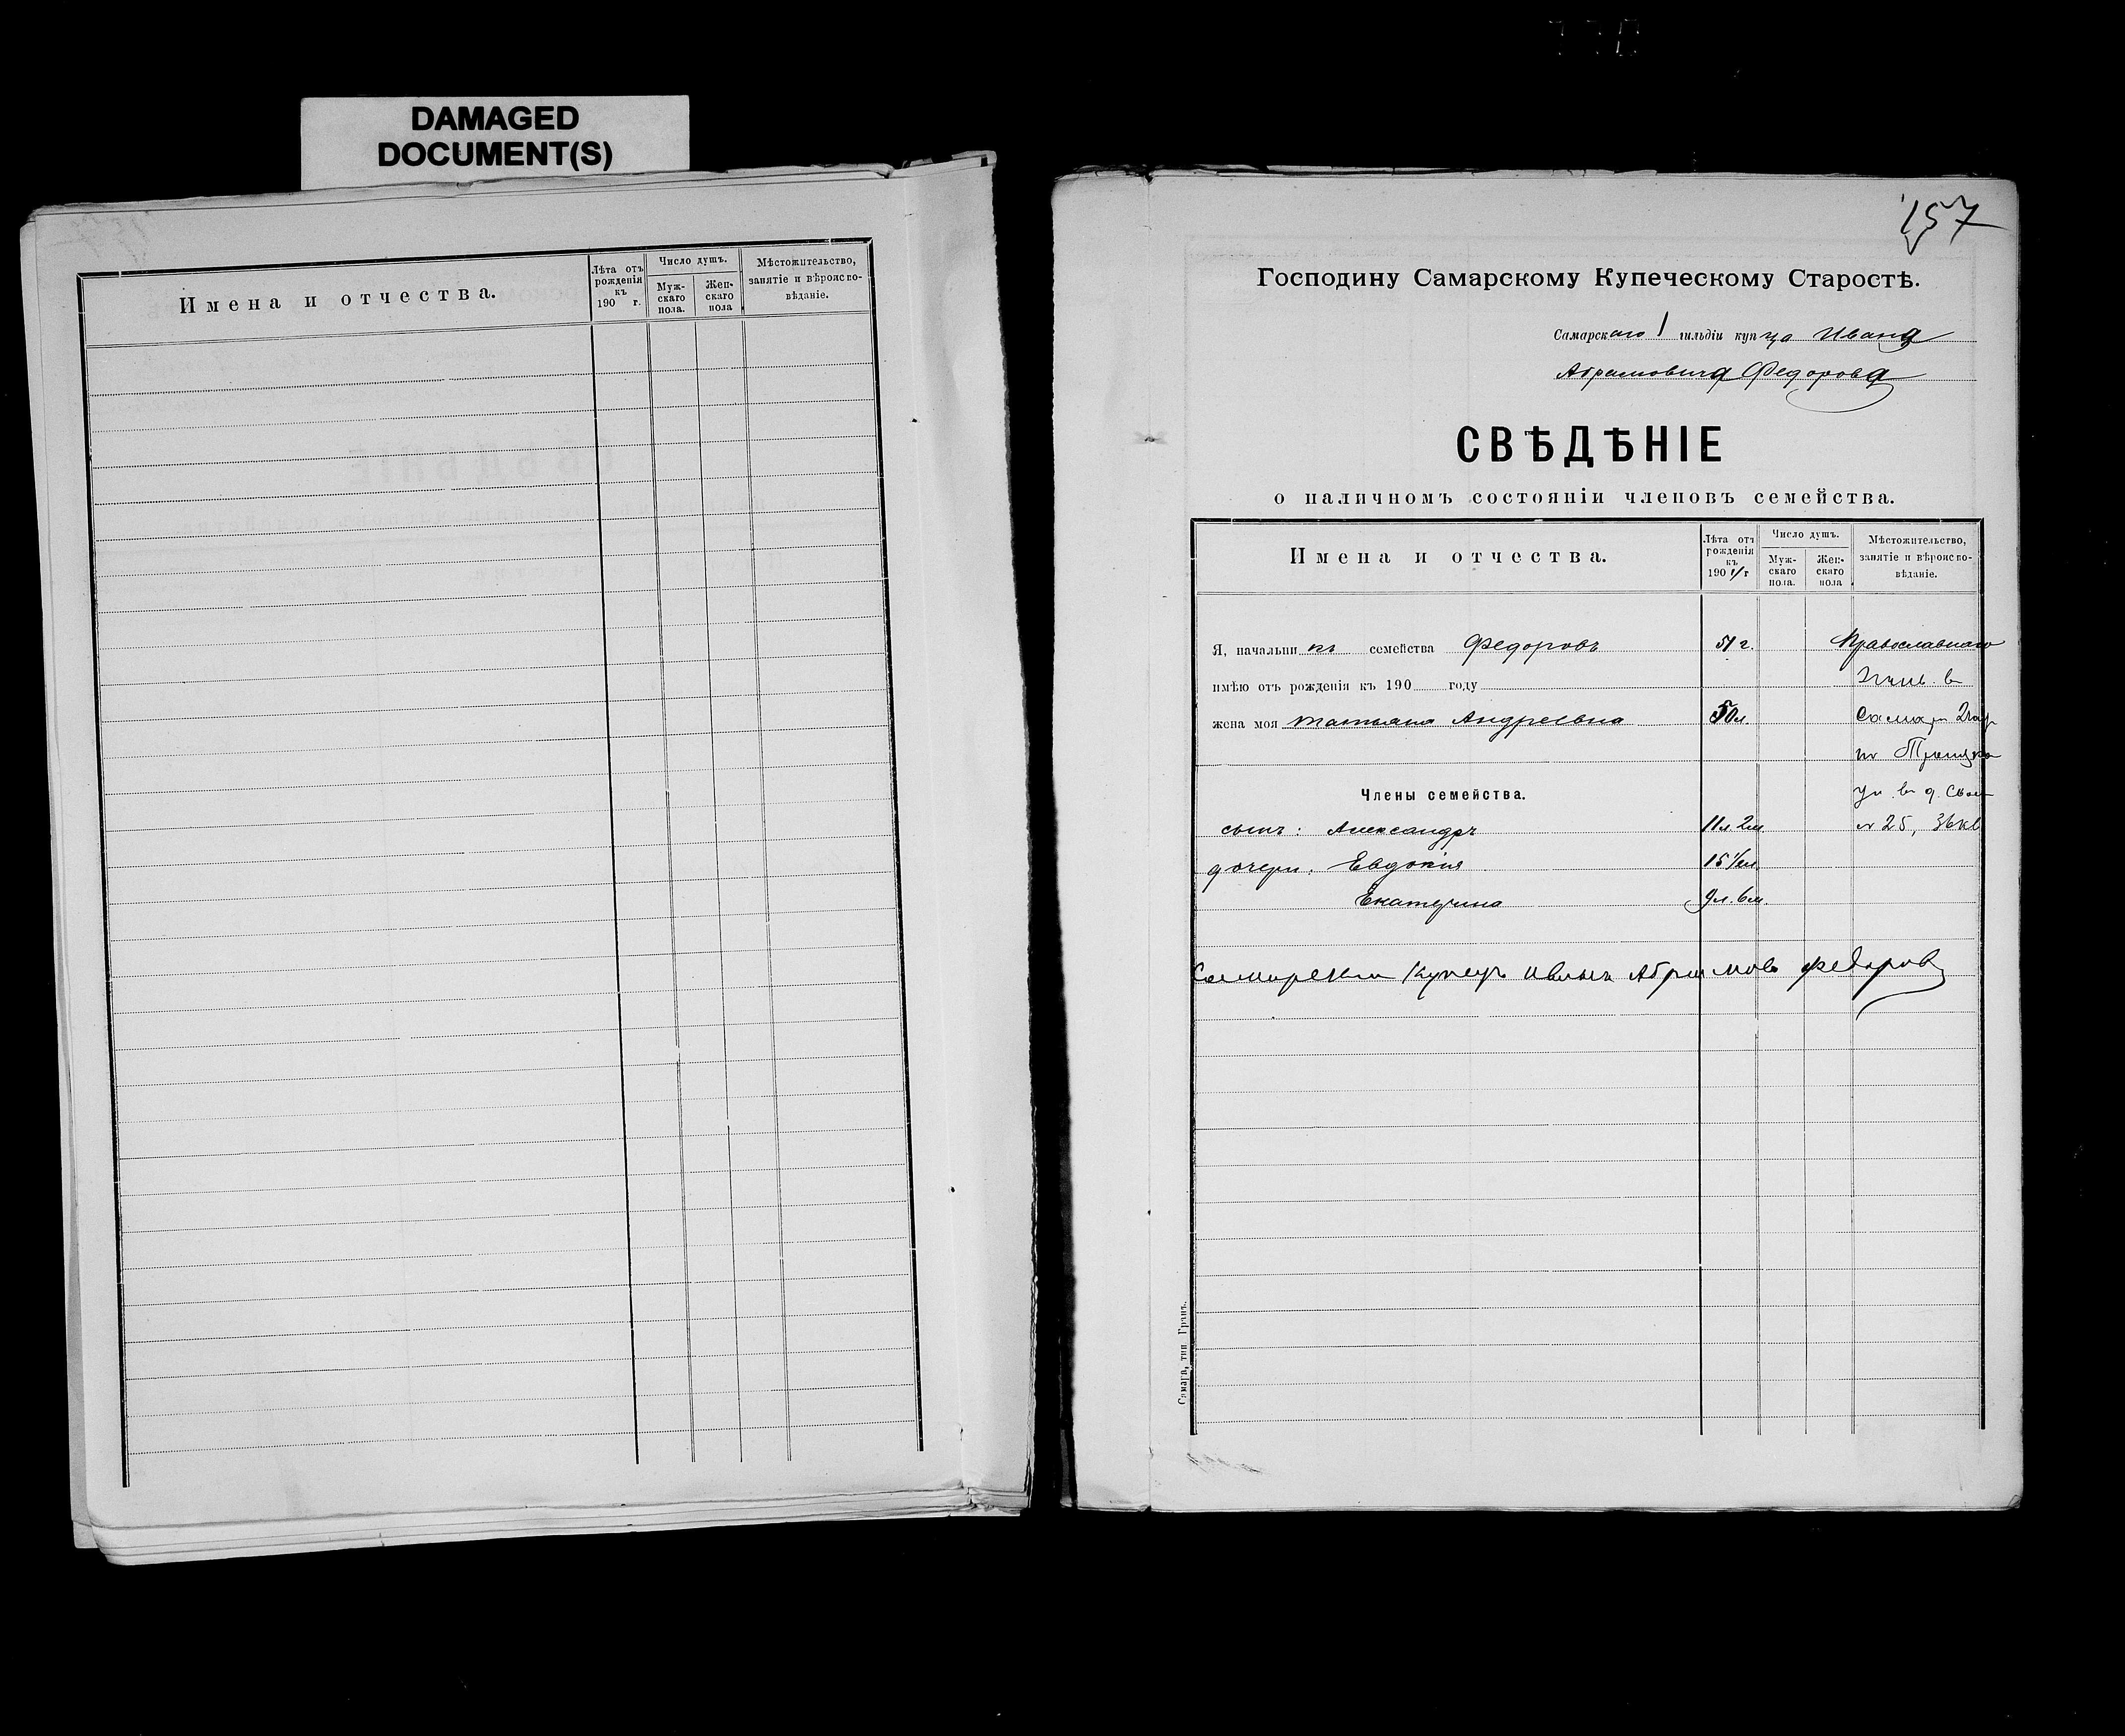 DAMAGED
DOCUMENT(S)
Имена и отчества.
Лѣта отъ рожденія къ 190 г.
Число душъ.
Мужскаго пола.
Женскаго пола
Мѣстожительство, занятіе и вѣроисповѣданіе.
157
Господину Самарскому Купеческому Старостѣ.
Самарскаго 1 гильдіи купца Ивана
Абрамовича Федорова
СВѢДѢНІЕ
о наличномъ состояніи членовъ семейства.
Имена и отчества.
Лѣта отъ рожденія къ 190 г
Число душъ.
Мужскаго пола.
Женскаго пола
Мѣстожительство, занятіе и вѣроисповѣданіе.
Я, начальникъ семейства Федоровъ 51 г. Православнаго
имѣю отъ рожденія къ 190 году в
жена моя Татьяна Андреевна 50 л. 2 ч
по Троицко
Члены семейства. ул. в д. Свое
сынъ: Александръ 11 л 2 м. № 25, 36 кв
дочери: Евдокія 15 1/2 л.
Екатерина 9 л. 6 м.
Самарскій Купецъ Иванъ Абрамовъ Федоровъ
Самара, тип. Гранъ.